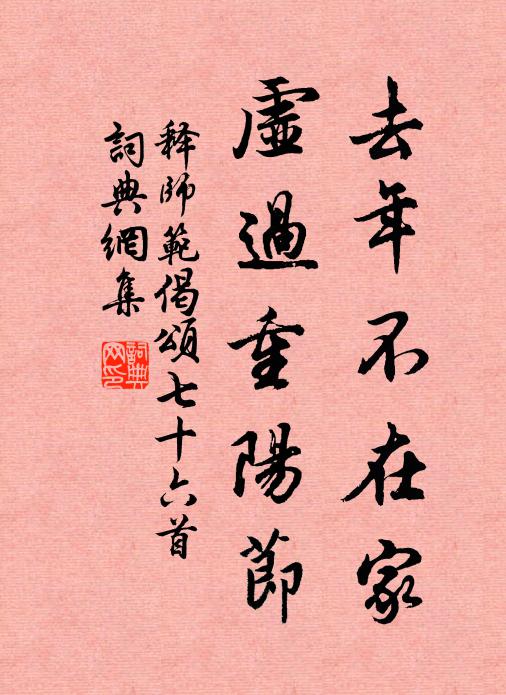 去年不在家
虛過重陽節
释師範偈頌七十六首
詞典網集
詞典網印